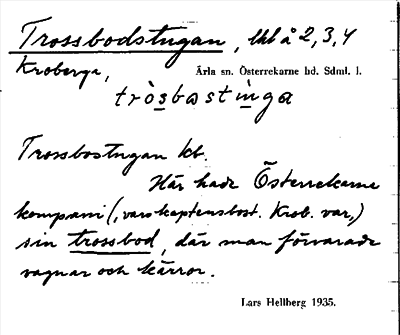 Trossbodstugan, lht å 2, 3, 4
Kroberga, Ärla sn. Österrekarne hd. Sdml. l.
tròsbastìnga
Trossbostugan kb.
Här hade Österrekarne
kompani (, vars kaptensbost. Krob. var,)
sin trossbod, där man förvarade
vagnar och kärror.
Lars Hellberg 1935.